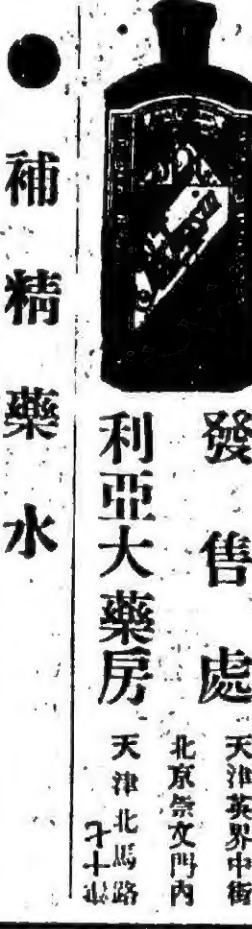 發售處
天津英界中街
北京祟文門內
利亞大藥房
天津北馬路
● 補精藥水